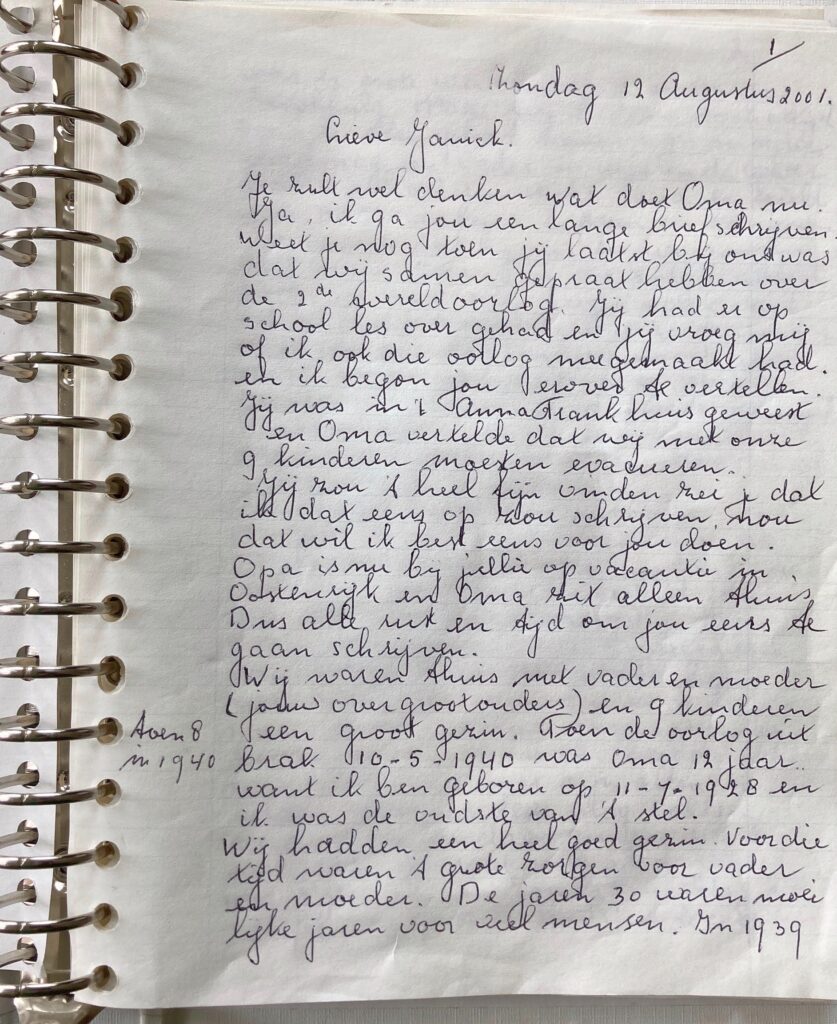 1/
Zondag 12 Augustus 2001.
Lieve Janick.
Je zult wel denken wat doet Oma nu.
Ja, ik ga jou een lange brief schrijven.
Weet je nog toen jij laatst bij ons was
dat wij samen gepraat hebben over
de 2de wereldoorlog. Jij had er op
school les over gehad en jij vroeg mij
of ik ook die oorlog meegemaakt had.
en ik begon jou erover te vertellen.
Jij was in 't Anna Frank huis geweest
en Oma vertelde dat wij met onze
9 kinderen moesten evacueren.
Jij zou 't heel fijn vinden zei je dat
ik dat eens op zou schrijven, nou
dat wil ik best eens voor jou doen.
Opa is nu bij jullie op vacantie in
Oostenrijk en Oma zit alleen thuis
Dus alle rust en tijd om jou eens te
gaan schrijven.
Wij waren thuis met vader en moeder
(jouw overgrootouders) en 9 kinderen
toen 8
in 1940
een groot gezin. Toen de oorlog uit
brak 10-5-1940 was Oma 12 jaar.
want ik ben geboren op 11-7-1928 en
ik was de oudste van 't stel.
Wij hadden een heel goed gezin. Voor die
tijd waren 't grote zorgen voor vader
en moeder. De jaren 30 waren moei
lijke jaren voor veel mensen. In 1939